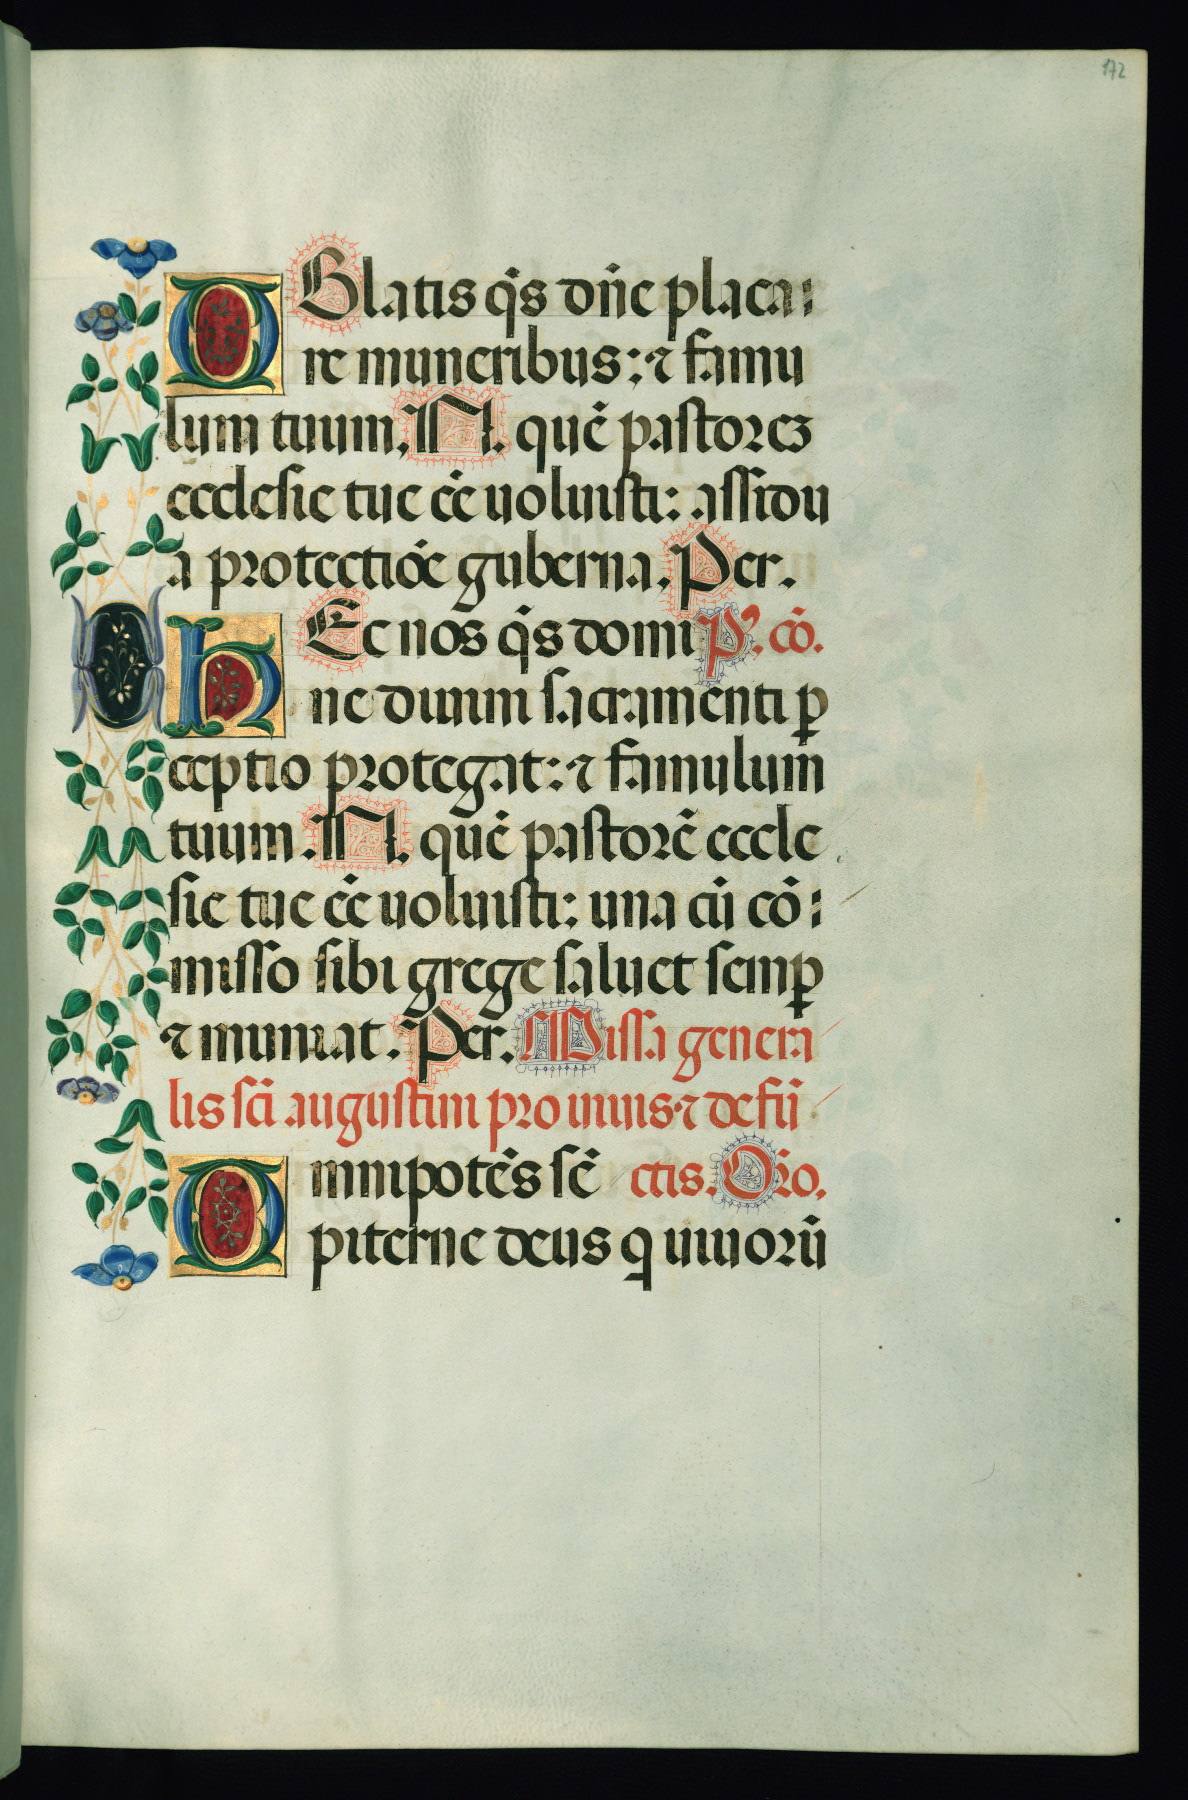 172
OBlatis q̃s dñe placa:
re muneribus: ⁊ famu
lum tuum. N. quẽ pastorez
ecclesie tue eẽ uoluisti: assidu
a protectiõe guberna. Per.
HEc nos q̃s domi P'. cõ.
ne diuini sacramenti ꝑ
ceptio protegat: ⁊ famulum
tuum. N. quẽ pastorẽ eccle
sie tue eẽ uoluisti: una cũ cõ:
misso sibi grege saluet semꝑ
⁊ muniat. Per. Missa genera
lis sc̃i augustini pro uiuis ⁊ defũ
Omnipotẽs sẽ ctis. Or̃o.
piterne deus q uiuorũ